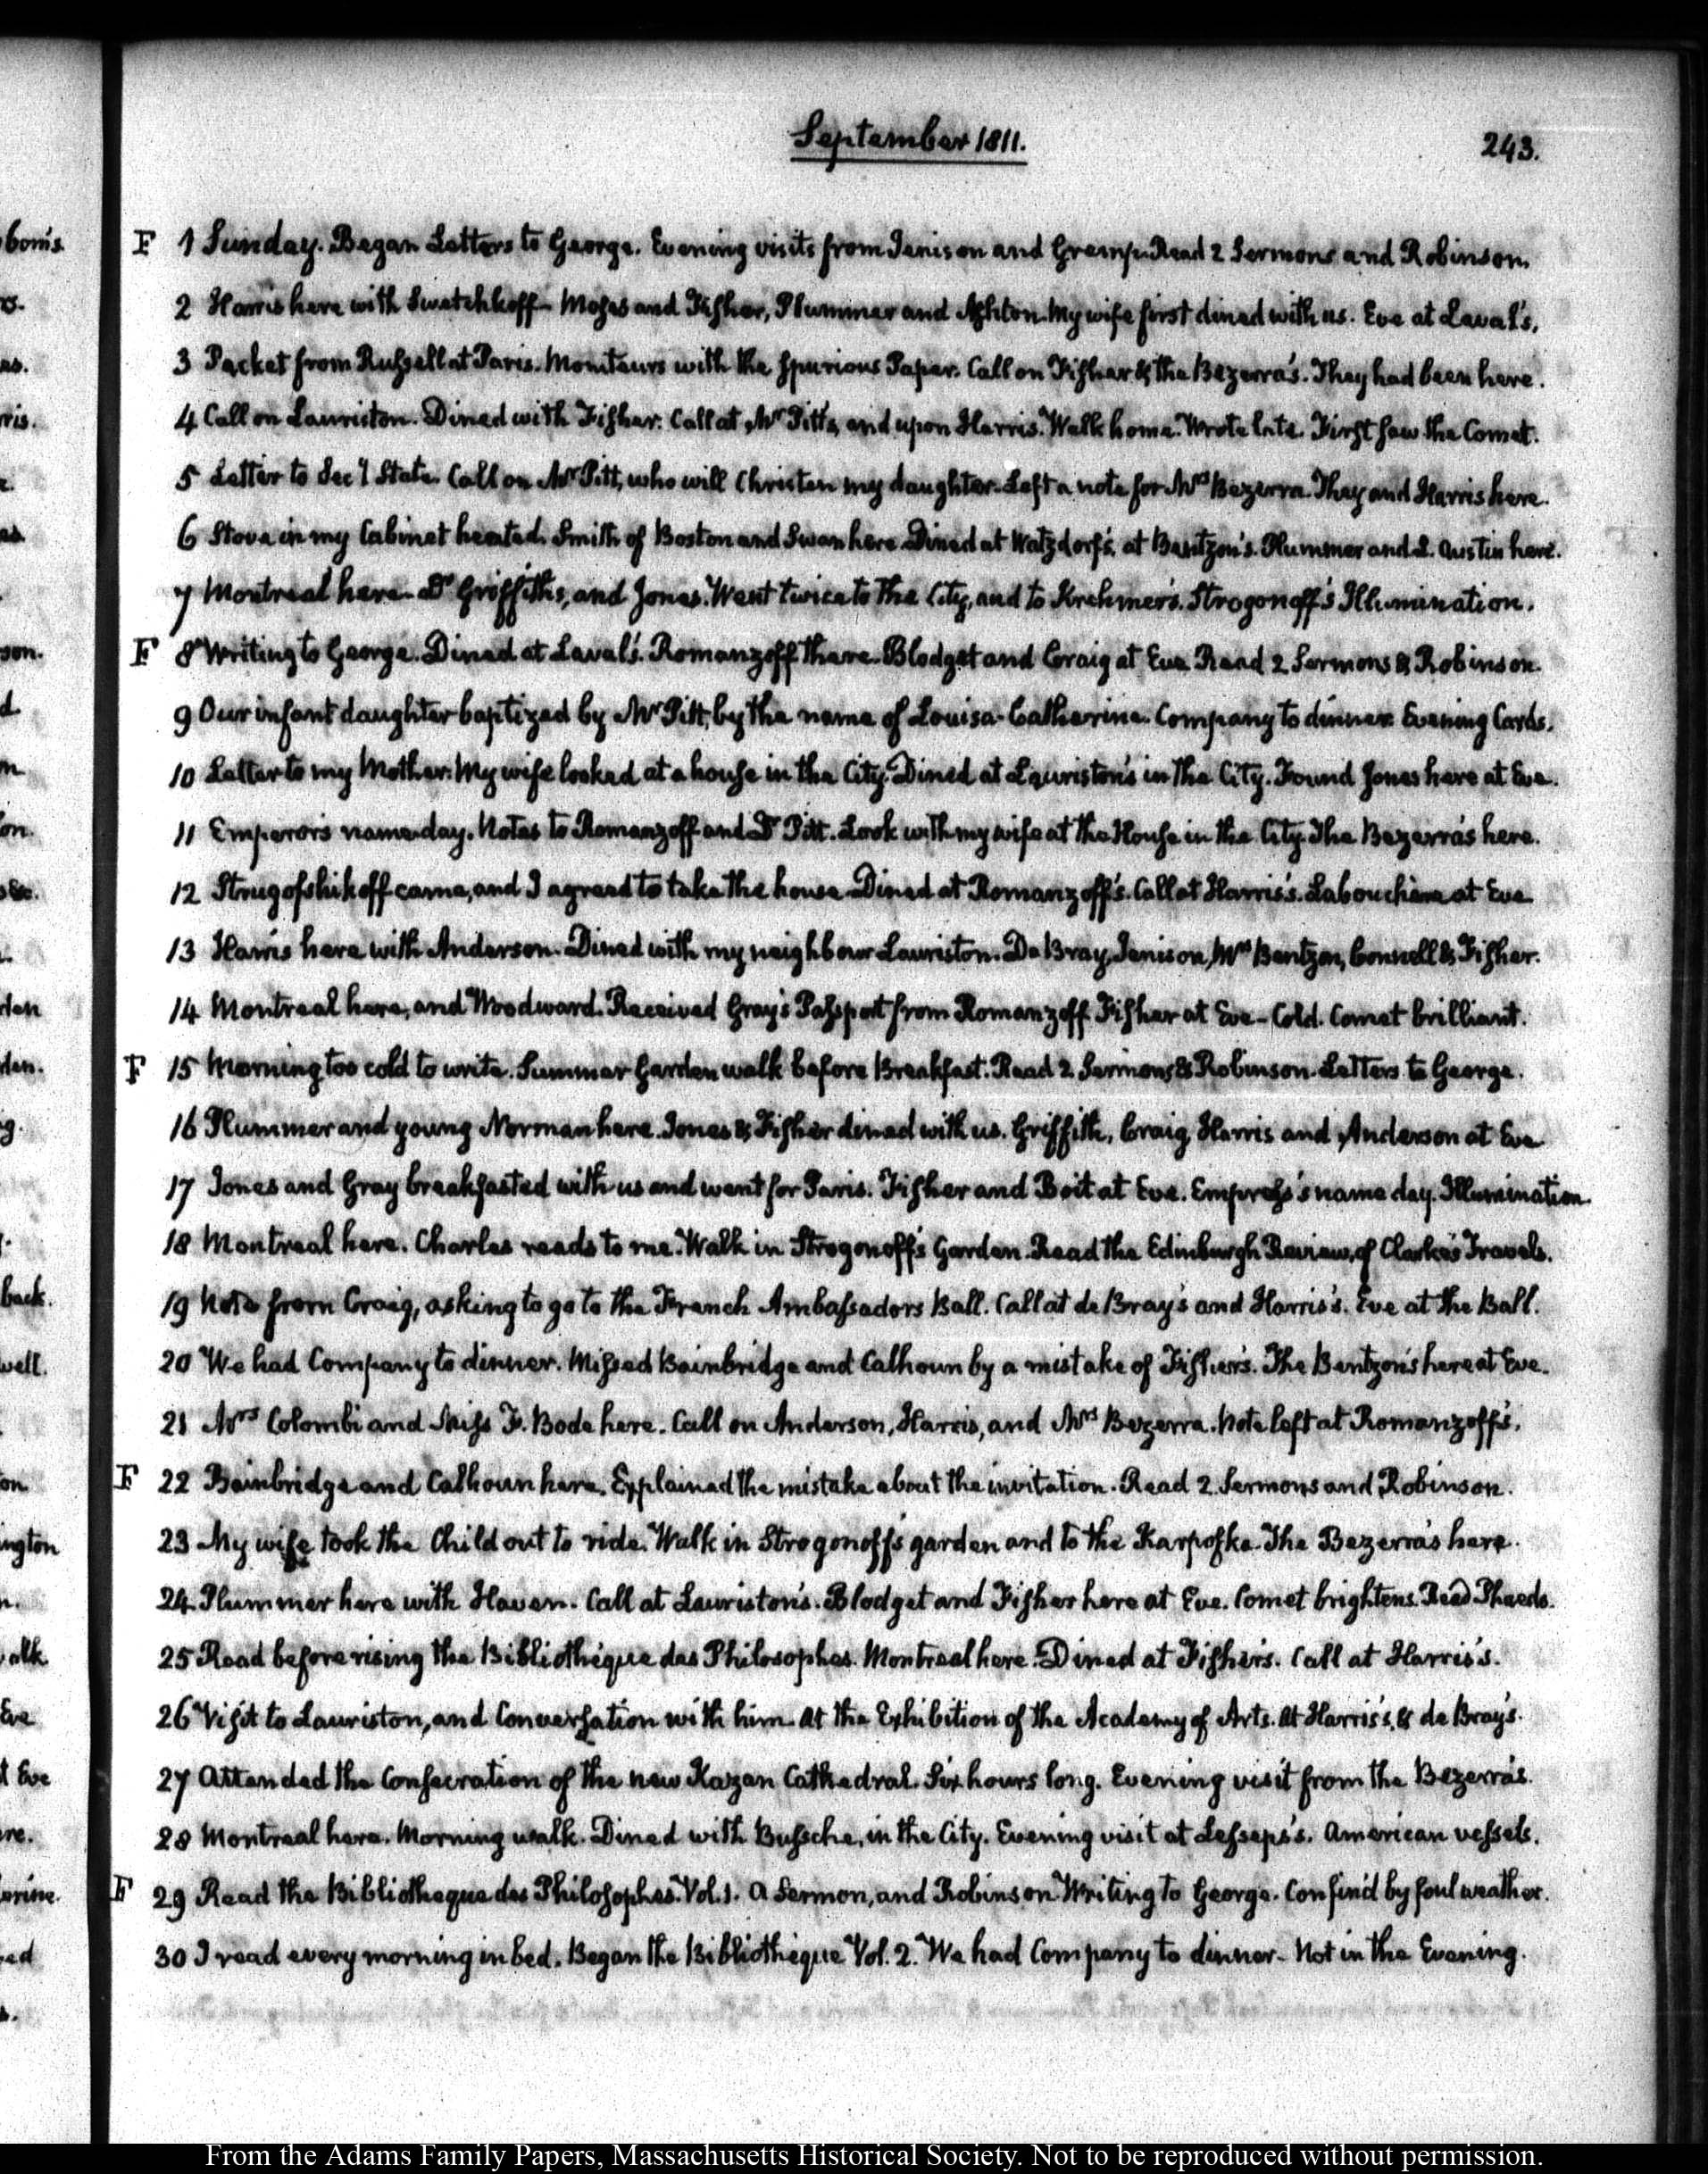 September 1811.
243.
F 1 Sunday. Began Letters to George. Evening visits from Jenison and Gremp. Read 2 Sermons and Robinson.
2 Harris here with Swatchkoff. Moses and Fisher, Plummer and Ashton. My wife first dined with us. Eve at Laval's.
3 Packet from Russell at Paris. Moniteurs with the spurious Paper. Call on Fisher & the Bezerra's. They had been here.
4 Call on Lauriston. Dined with Fisher. Call at Mr Pitt's, and upon Harris. Walk home. Wrote late. First saw the Comet.
5 Letter to Secy State. Call on Mr Pitt, who will Christen my daughter. Left a note for Mrs Bezerra. They and Harris here.
6 Stove in my Cabinet heated. Smith of Boston and Swan here. Dined at Watzdorf's, at Bentzon's. Plummer and L. Austin here.
7 Montreal here. Dr Griffiths, and Jones. Went twice to the City, and to Krehmer's. Strogonoff's Illumination.
F 8 Writing to George. Dined at Laval's. Romanzoff there. Blodget and Craig at Eve. Read 2 Sermons & Robinson.
9 Our infant daughter baptized by Mr Pitt, by the name of Louisa-Catherine. Company to dinner. Evening Cards.
10 Letter to my Mother. My wife looked at a house in the City. Dined at Lauriston's in the City. Found Jones here at Eve.
11 Emperor's name-day. Notes to Romanzoff and Dr Pitt. Look with my wife at the House in the City. The Bezerra's here.
12 Strugofshikoff came, and I agreed to take the house. Dined at Romanzoff's. Call at Harris's. Labouchère at Eve
13 Harris here with Anderson. Dined with my neighbour Lauriston. De Bray, Jenison, Mrs Bentzon, Connell & Fisher.
14 Montreal here, and Woodward. Received Gray's Passport from Romanzoff. Fisher at Eve - Cold. Comet brilliant.
F 15 Morning too cold to write. Summer Garden walk before Breakfast. Read 2 Sermons & Robinson. Letters to George.
16 Plummer and young Norman here. Jones & Fisher dined with us. Griffith, Craig, Harris and Anderson at Eve
17 Jones and Gray breakfasted with us and went for Paris. Fisher and Boit at Eve. Empress's name day. Illumination.
18 Montreal here. Charles reads to me. Walk in Strogonoff's Garden. Read the Edinburgh Review, of Clarke's Travels.
19 Note from Craig, asking to go to the French Ambassadors Ball. Call at de Bray's and Harris's. Eve at the Ball.
20 We had Company to dinner. Missed Bainbridge and Calhoun by a mistake of Fisher's. The Bentzon's here at Eve.
21 Mrs Colombi and Miss F. Bode here. Call on Anderson, Harris, and Mrs Bezerra. Note left at Romanzoff's.
F 22 Bainbridge and Calhoun here. Explained the mistake about the invitation. Read 2 Sermons and Robinson.
23 My wife took the Child out to ride. Walk in Strogonoff's garden and to the Karpofka. The Bezerra's here.
24 Plummer here with Haven. Call at Lauriston's. Blodget and Fisher here at Eve. Comet brightens. Read Phaedo.
25 Read before rising the Bibliothéque des Philosophes. Montreal here. Dined at Fisher's. Call at Harris's.
26 Visit to Lauriston, and Conversation with him. At the Exhibition of the Academy of Arts. At Harris's, & de Bray's.
27 Attended the Consecration of the new Kazan Cathedral. Six hours long. Evening visit from the Bezerra's.
28 Montreal here. Morning walk. Dined with Bussche, in the City. Evening visit at Lesseps's. American vessels.
F 29 Read the Bibliotheque des Philosophes. Vol. 1. A Sermon, and Robinson. Writing to George. Confin'd by foul weather.
30 I read every morning in bed. Began the Bibliothéque Vol. 2. We had Company to dinner. Not in the Evening.
From the Adams Family Papers, Massachusetts Historical Society. Not to be reproduced without permission.